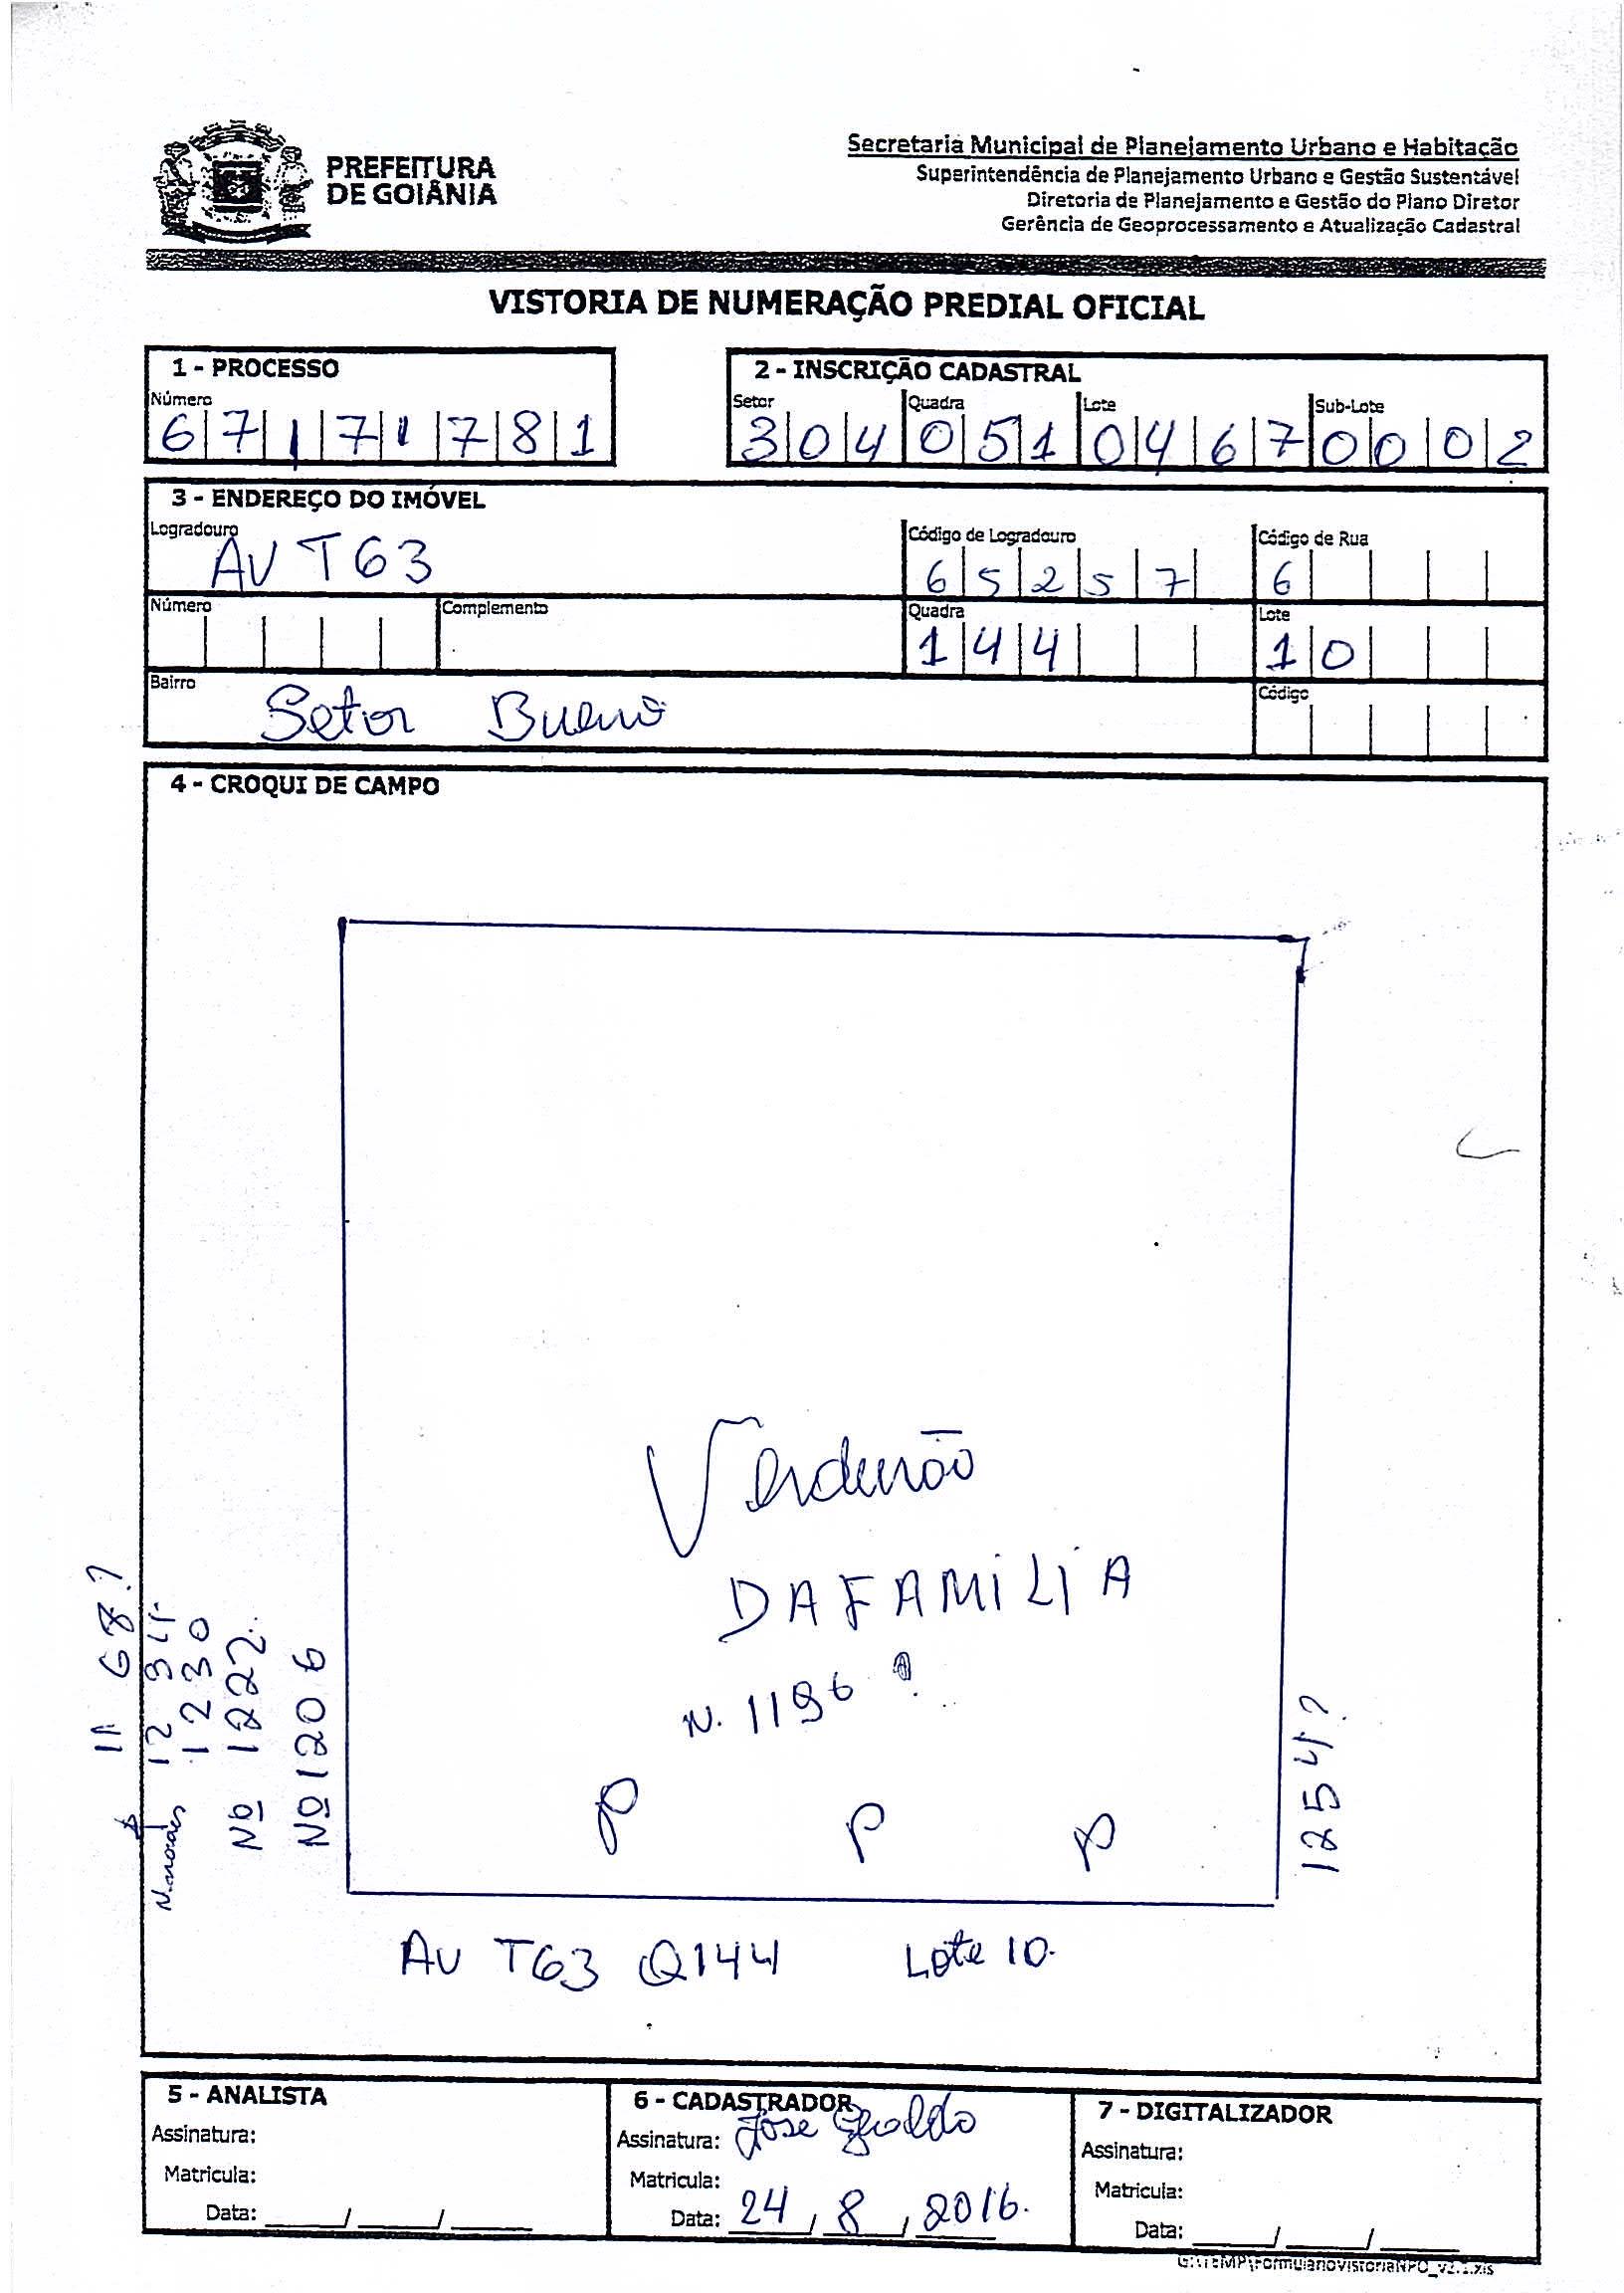 PREFEITURA
DE GOIÂNIA
Secretaria Municipal de Planejamento Urbano e Habitação
Superintendência de Planejamento Urbano e Gestão Sustentável
Diretoria de Planejamento e Gestão do Plano Diretor
Gerência de Geoprocessamento e Atualização Cadastral
VISTORIA DE NUMERAÇÃO PREDIAL OFICIAL
1 - PROCESSO
Número
6 7 1 7 1 7 8 1
2 - INSCRIÇÃO CADASTRAL
Setor Quadra Lote Sub-Lote
3 0 4 0 5 1 0 4 6 7 0 0 0 2
3 - ENDEREÇO DO IMÓVEL
Logradouro Código de Logradouro Código de Rua
AV T63 6 5 2 5 7 6
Número Complemento Quadra Lote
1 4 4 1 0
Bairro Código
Setor Bueno
4 - CROQUI DE CAMPO
Verdurão
DA FAMILIA
N. 1196
P P P
11 68?
1230
Nº 1222.
Nº 1206
1254?
AV T63 Q144 Lote 10.
5 - ANALISTA
Assinatura:
Matricula:
Data: ___/___/___
6 - CADASTRADOR
Assinatura: José Geraldo
Matricula:
Data: 24/8/2016.
7 - DIGITALIZADOR
Assinatura:
Matricula:
Data: ___/___/___
G:\TEMP\FormularioVistoriaNPO_v2.1.xls